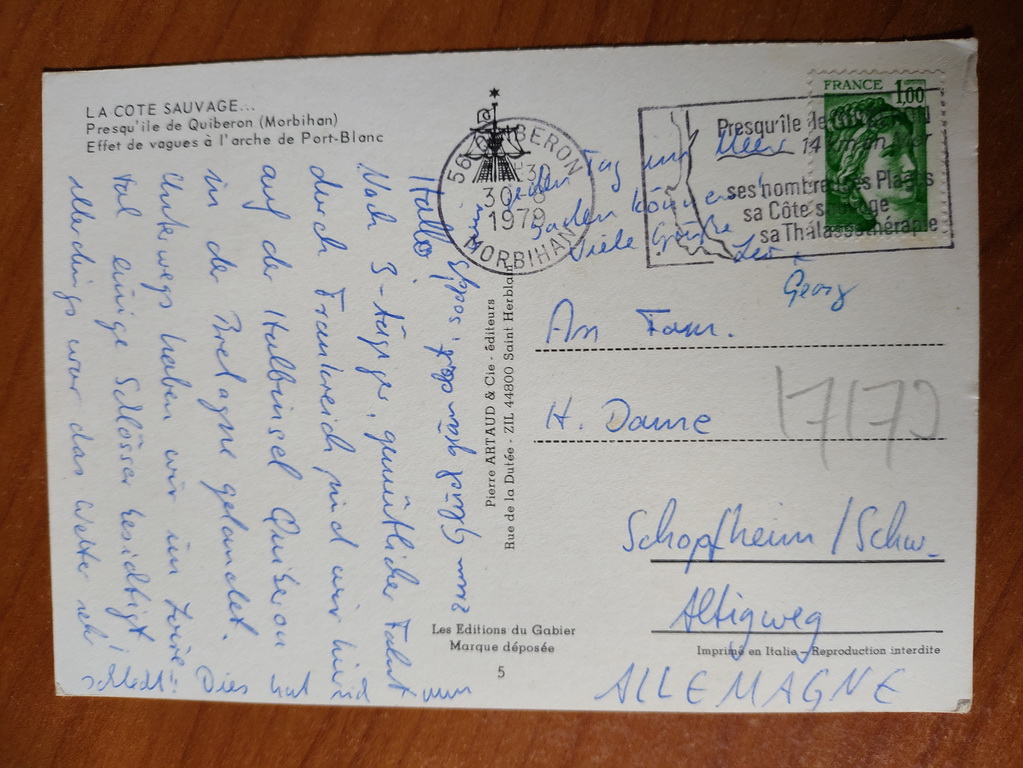 LA COTE SAUVAGE...
Presqu'ile de Quiberon (Morbihan)
Effet de vagues à l'arche de Port-Blanc
Hallo
Nach 3-tägiger, gemütlicher Fahrt
durch Frankreich sind wir hier
auf der Halbinsel Quiberon
in der Bretagne gelandet.
Unterwegs haben wir im Loire
tal einige Schlösser besichtigt,
allerdings war das Wetter sehr
schlecht. Dies hat
nun
jeden Tag im Meer
baden können
Viele Grüße
Georg
56 QUIBERON
1979
MORBIHAN
Presqu'île de
14 km en mer
ses nombreuses Plages
sa Côte sauvage
sa Thalassothérapie
FRANCE 1,00
Pierre ARTAUD & Cie - éditeurs
Rue de la Dutée - ZIL 44800 Saint Herblain
An Fam.
H. Danne
17179
Schopfheim / Schw.
Altigweg
ALLEMAGNE
Les Editions du Gabier
Marque déposée
5
Imprimé en Italie - Reproduction interdite